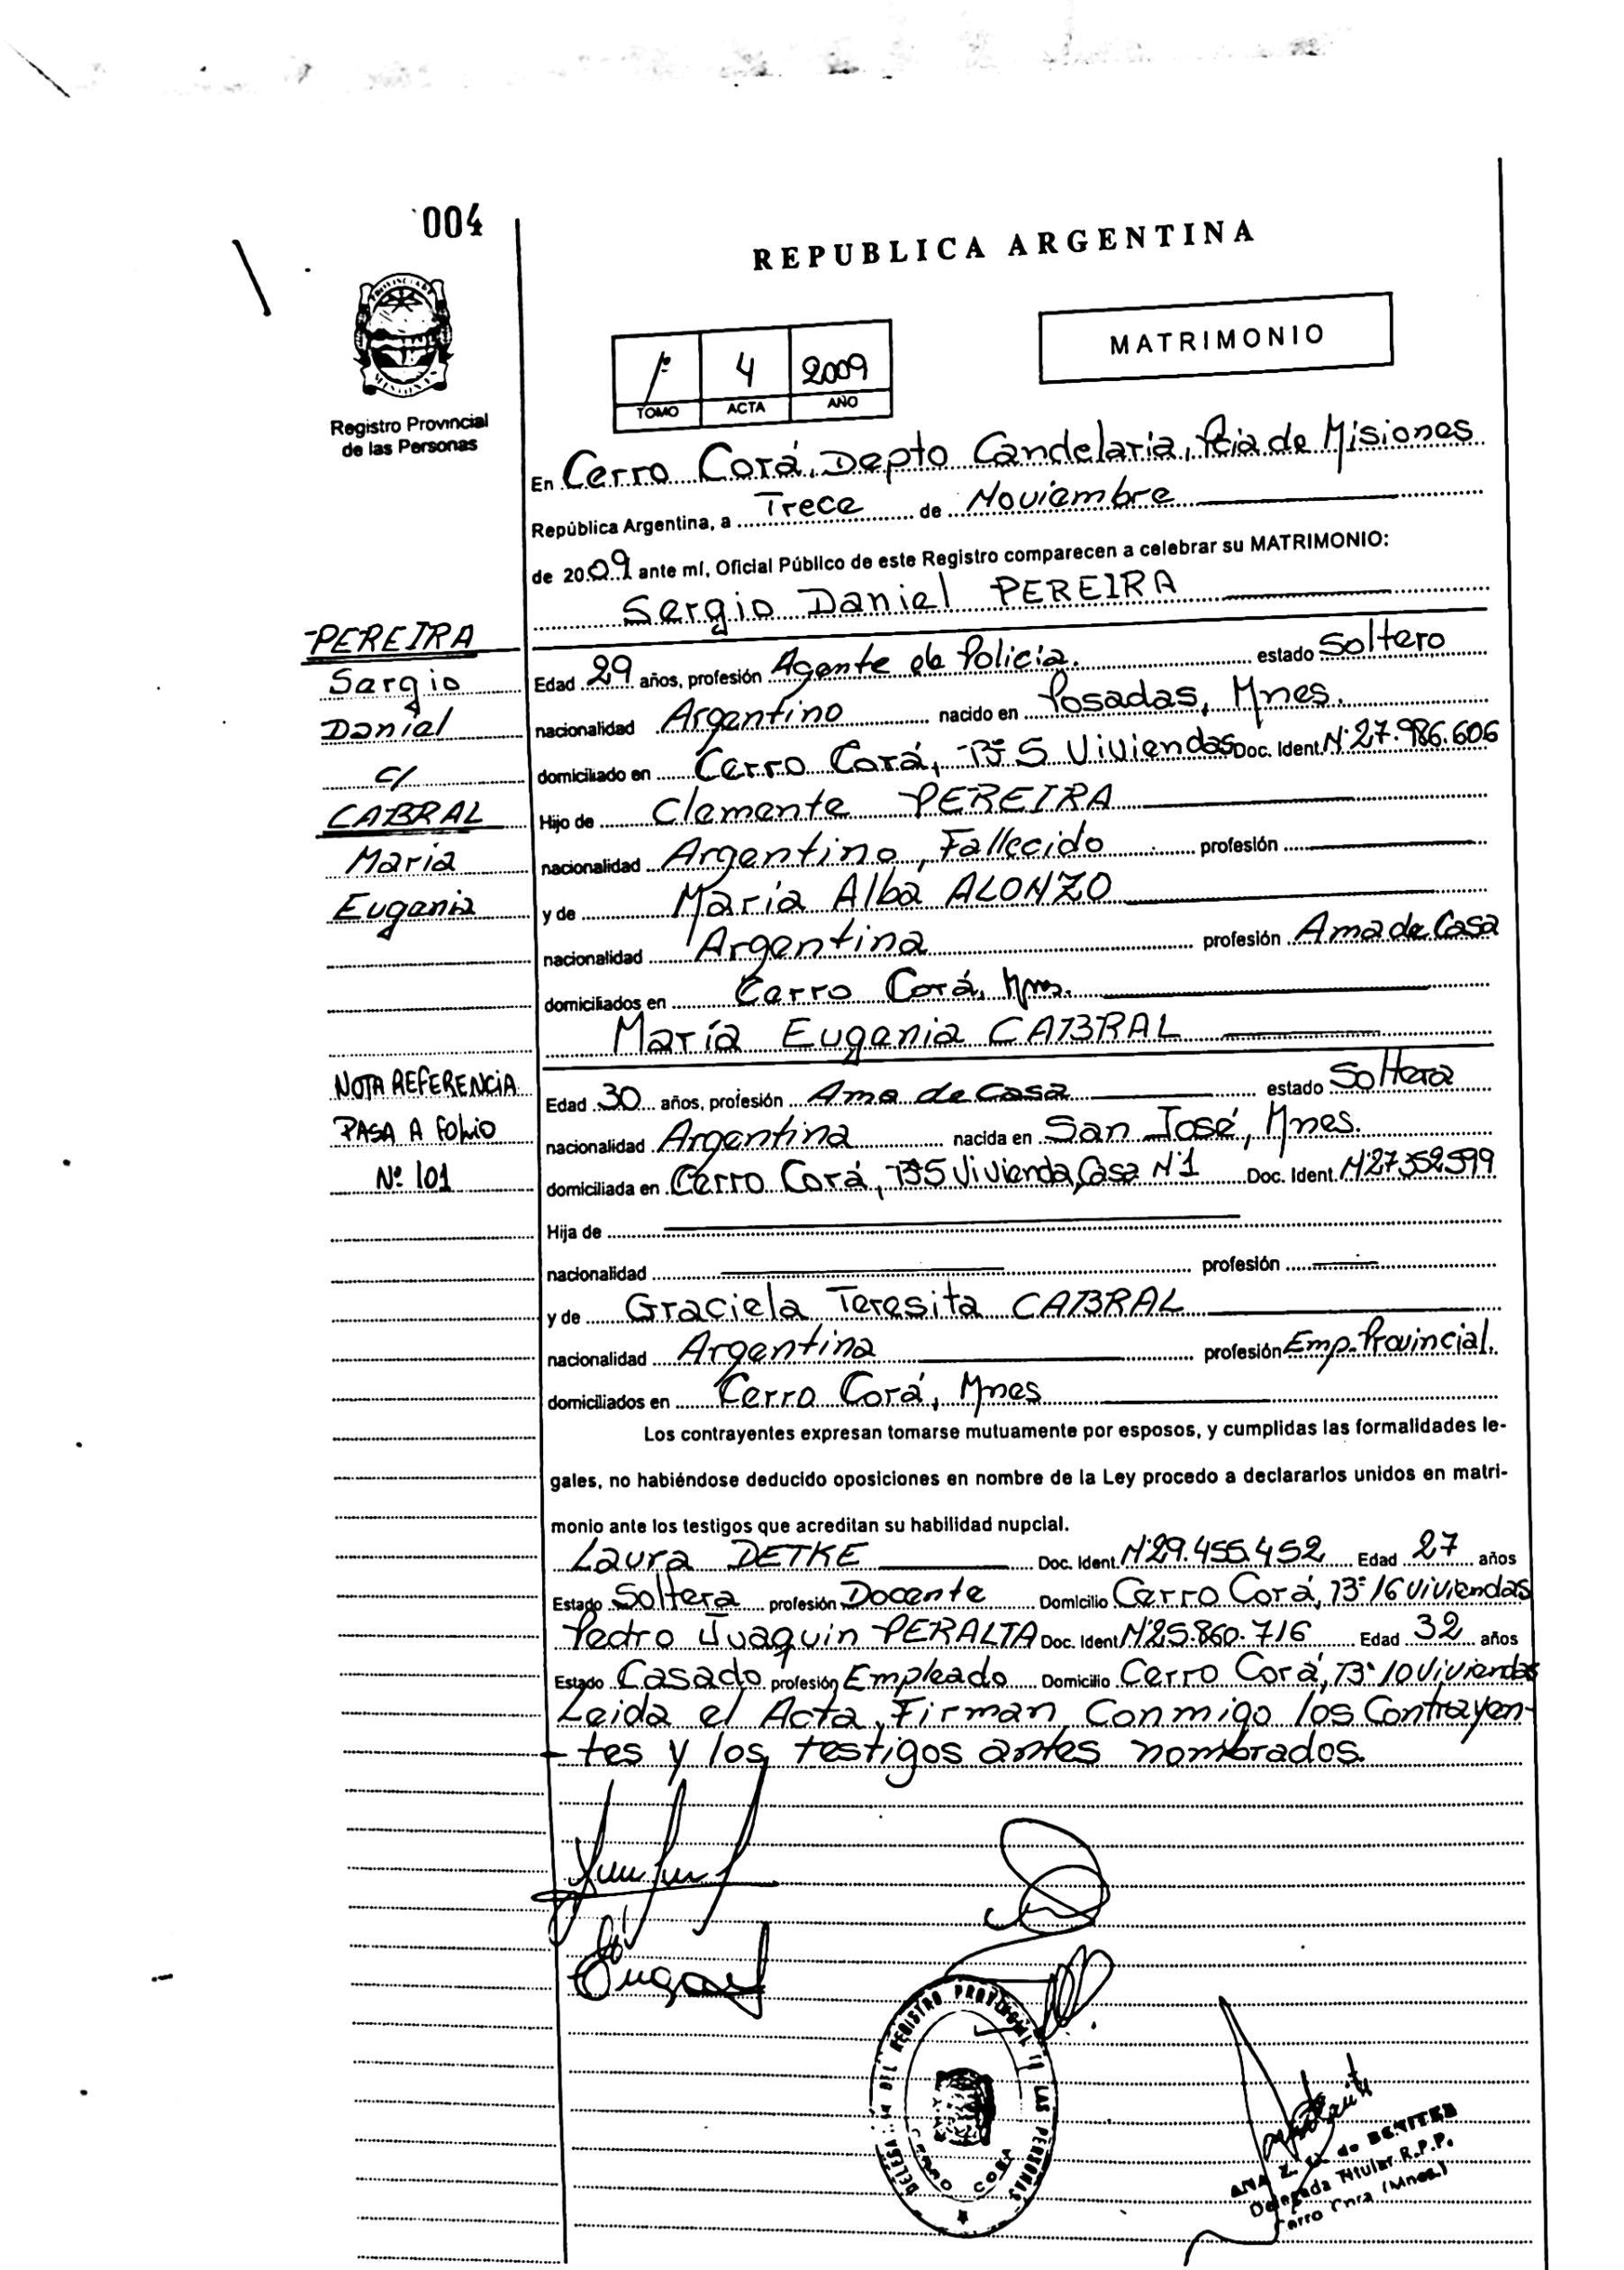 004
REPUBLICA ARGENTINA
MATRIMONIO
1º 4 2009
TOMO ACTA AÑO
Registro Provincial
de las Personas
En Cerro Corá, Depto Candelaria, Pcia de Misiones
República Argentina, a Trece de Noviembre
de 2009 ante mí, Oficial Público de este Registro comparecen a celebrar su MATRIMONIO:
Sergio Daniel PEREIRA
PEREIRA
Sergio
Daniel
c/
CABRAL
Maria
Eugenia
Edad 29 años, profesión Agente de Policia. estado Soltero
nacionalidad Argentino nacido en Posadas, Mnes.
domiciliado en Cerro Corá, Bº 5 Viviendas Doc. Ident. Nº 27.986.606
Hijo de Clemente PEREIRA
nacionalidad Argentino, Fallecido profesión
y de María Alba ALONZO
nacionalidad Argentina profesión Ama de Casa
domiciliados en Cerro Corá, Mnes.
María Eugenia CABRAL
NOTA REFERENCIA
PASA A FOLIO
Nº 101
Edad 30 años, profesión Ama de Casa estado Soltera
nacionalidad Argentina nacida en San José, Mnes.
domiciliada en Cerro Corá, Bº 5 Vivienda, Casa Nº 1 Doc. Ident. Nº 27.352.599
Hija de
nacionalidad profesión
y de Graciela Teresita CABRAL
nacionalidad Argentina profesión Emp. Provincial.
domiciliados en Cerro Corá, Mnes
Los contrayentes expresan tomarse mutuamente por esposos, y cumplidas las formalidades le-
gales, no habiéndose deducido oposiciones en nombre de la Ley procedo a declararlos unidos en matri-
monio ante los testigos que acreditan su habilidad nupcial.
Laura DETKE Doc. Ident. Nº 29.455.452 Edad 27 años
Estado Soltera profesión Docente Domicilio Cerro Corá, Bº 16 Viviendas
Pedro Juaquin PERALTA Doc. Ident. Nº 25.860.716 Edad 32 años
Estado Casado profesión Empleado Domicilio Cerro Corá, Bº 10 Viviendas
Leida el Acta, Firman Conmigo los Contrayen-
-tes y los testigos antes nombrados.
DEL REGISTRO PROVINCIAL LAS PERSONAS
CERRO CORA
ANA Z. de BENITEZ
Delegada Titular R.P.P.
Cerro Cora (Mnes.)